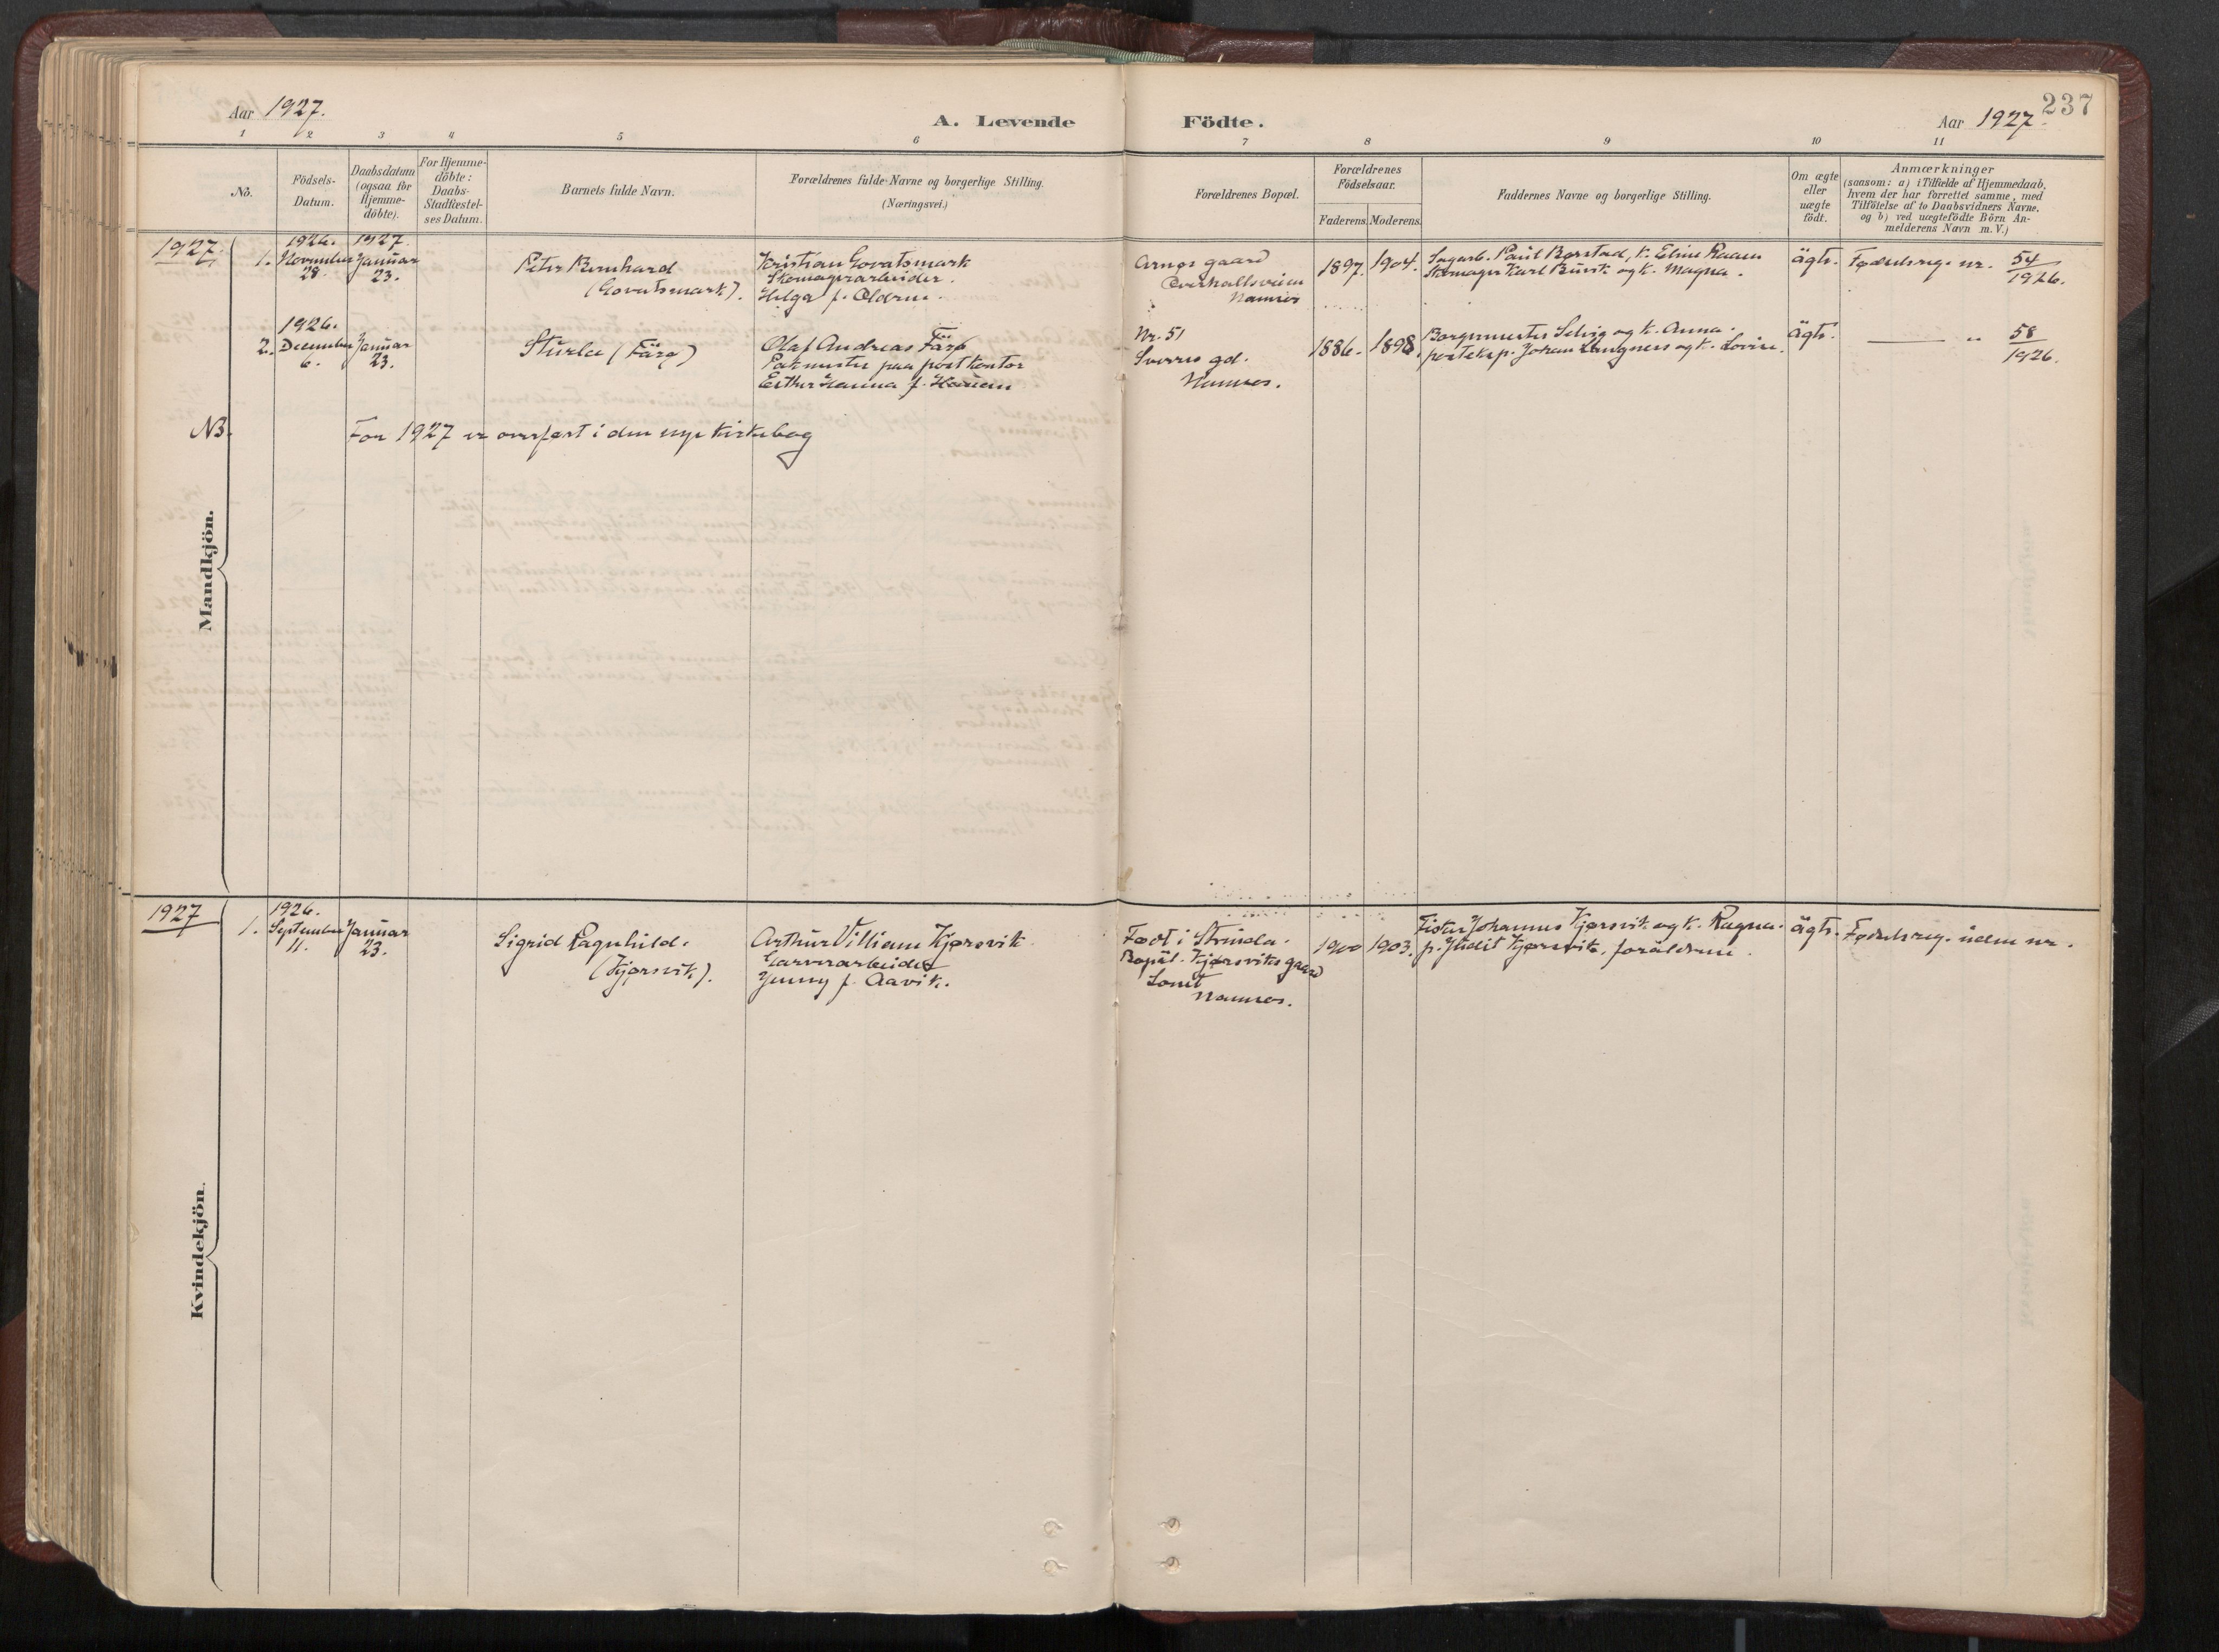 237
Aar 1927.
A. Levende Födte.
Aar 1927.
1 2 3 4 5 6 7 8 9 10 11
No.
Födsels-
Datum.
Daabsdatum
(ogsaa for
Hjemme-
döbte).
For Hjemme-
döbte:
Daabs-
Stadfæstel-
ses Datum.
Barnets fulde Navn.
Forældrenes fulde Navne og borgerlige Stilling.
(Næringsvei.)
Forældrenes Bopæl.
Forældrenes
Födselsaar.
Faderens. Moderens.
Faddernes Navne og borgerlige Stilling.
Om ægte
eller
uægte
födt.
Anmærkninger
(saasom: a) i Tilfælde af Hjemmedaab,
hvem der har forrettet samme, med
Tilföielse af to Daabsvidners Navne,
og b) ved uægtefödte Börn An-
melderens Navn m. V.)
Mandkjön.
1927
1.
1926.
November
28.
1927.
Januar
23.
Peter Bernhard
(Govatsmark).
Kristian Govatsmark
Skomagerarbeider.
Helga f. Oldren.
Arnøs gaard
Overhallsveien
Namsos
1897. 1904.
Sagarb. Paul Børstad, k. Eline Raaen
Skomager Karl Busk og k. Magna.
ägte.
Fødselsreg. nr. 54/1926.
2.
1926.
December
6.
Januar
23.
Sturla (Färø)
Olaf Andreas Färø
Pakmester paa postkontor
Esther Hanna f. Hauan
Nr. 51
Sverres gd.
Namsos.
1886. 1898.
Borgermester Selvig og k. Anna.
posteksp. Johan Langnes og k. Lovise.
ägte.
— " 58/1926.
NB. For 1927 er overført i den nye kirkebog
Kvindekjön.
1927
1.
1926.
September
11.
Januar
23.
Sigrid Ragnhild.
(Kjørsvik).
Arthur Villiam Kjørsvik
Garverarbeider
Jenny f. Aavik.
Født i Strinda.
Bopäl. Kjørsviks gaard
Lonet
Namsos.
1900 1903.
Fisker Johannes Kjørsvik og k. Ragna.
p. Judit Kjørsvik, foräldrene.
ägte.
Fødselsreg. uden nr.